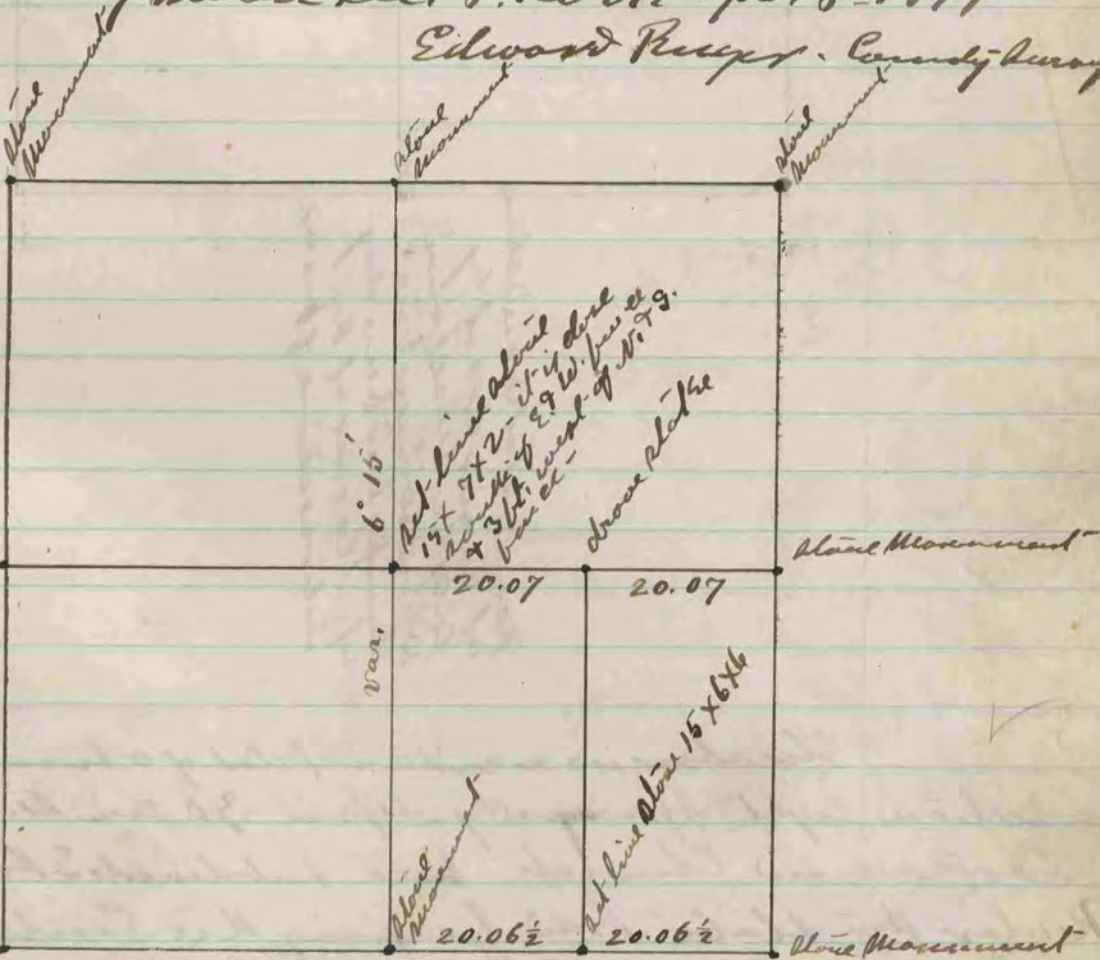 Edward Ruger. County Survey
Stone
Monument
Stone
Monument
Stone
Monument
set lime stone
15 x 7 x 2 - it is done
south of E. & W. fence
& 3 ft. west of N. & S.
fence -
drove stake
6° 15'
Var.
Stone Monument
20.07
20.07
set lime stone 15 x 6 x 6
Stone
Monument
20.06½
20.06½
Stone Monument